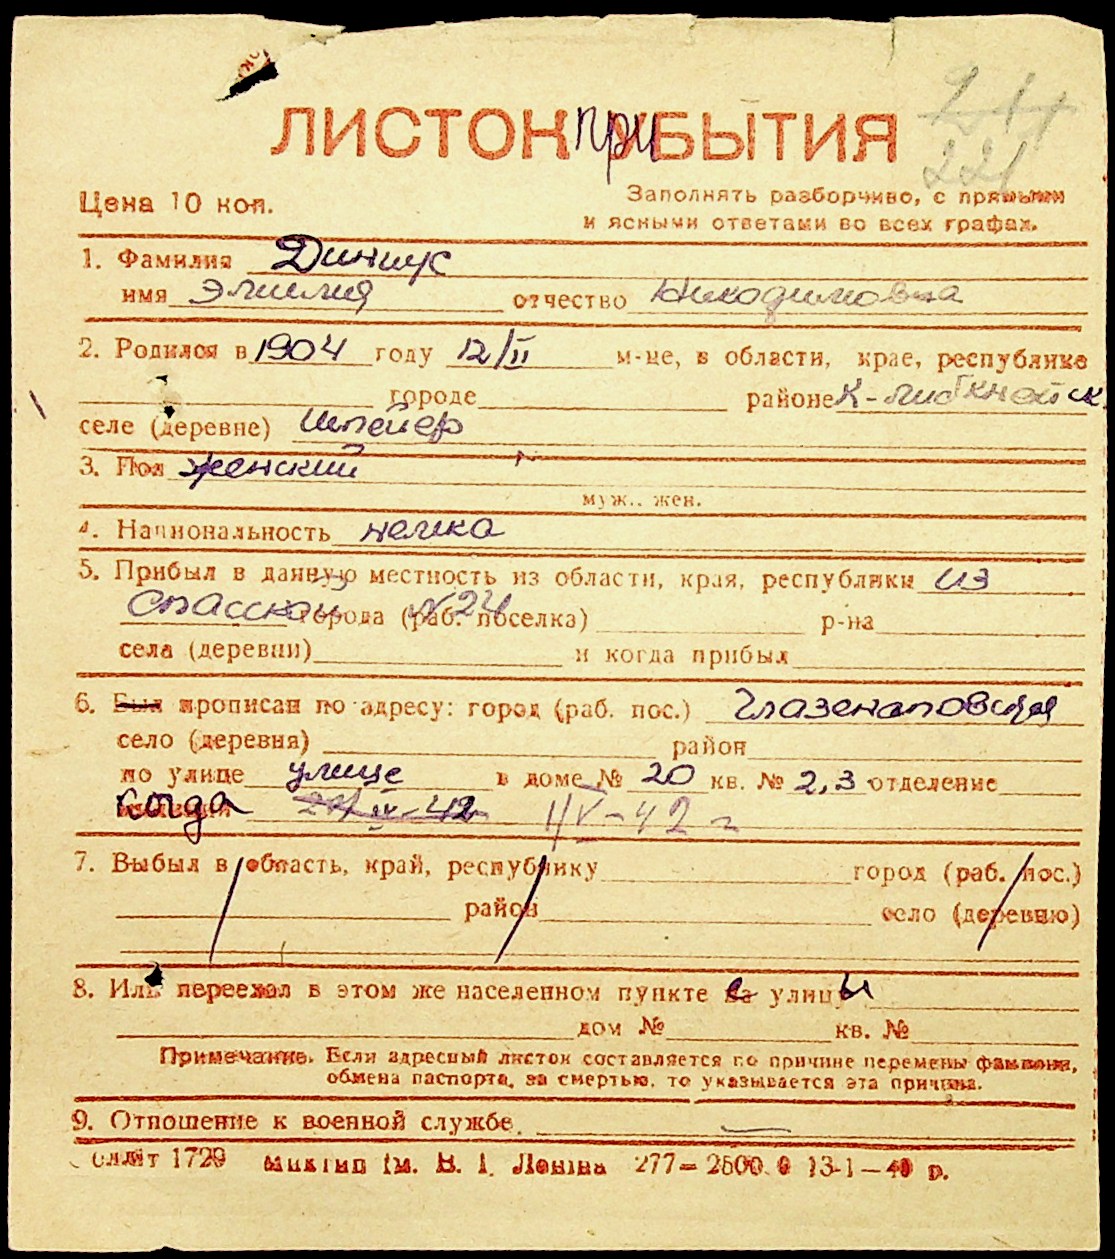 ЛИСТОК ПРИБЫТИЯ
221
Цена 10 коп.
Заполнять разборчиво, с прямыми
и ясными ответами во всех графах.
1. Фамилия Динщук
имя Эмилия отчество Никодимовна
2. Родился в 1904 году 12/II м-це, в области, крае, республике
городе районе К-Либкнехтск
селе (деревне) Шпейер
3. Пол женский
муж., жен.
4. Национальность немка
5. Прибыл в данную местность из области, края, республики из
Спасской города (раб. поселка) №24 р-на
села (деревни) и когда прибыл
6. Был прописан по адресу: город (раб. пос.) Глазенаповская
село (деревня) район
по улице улице в доме № 20 кв. № 2,3 отделение
когда 1/V-42 г
7. Выбыл в область, край, республику город (раб. пос.)
район село (деревню)
8. Или переехал в этом же населенном пункте с улицы
дом № кв. №
Примечание. Если адресный листок составляется по причине перемены фамилии,
обмена паспорта, за смертью, то указывается эта причина.
9. Отношение к военной службе. —
оллiт 1729 Миктип iм. В. I. Ленiна 277-2500.0 13-1-40 р.